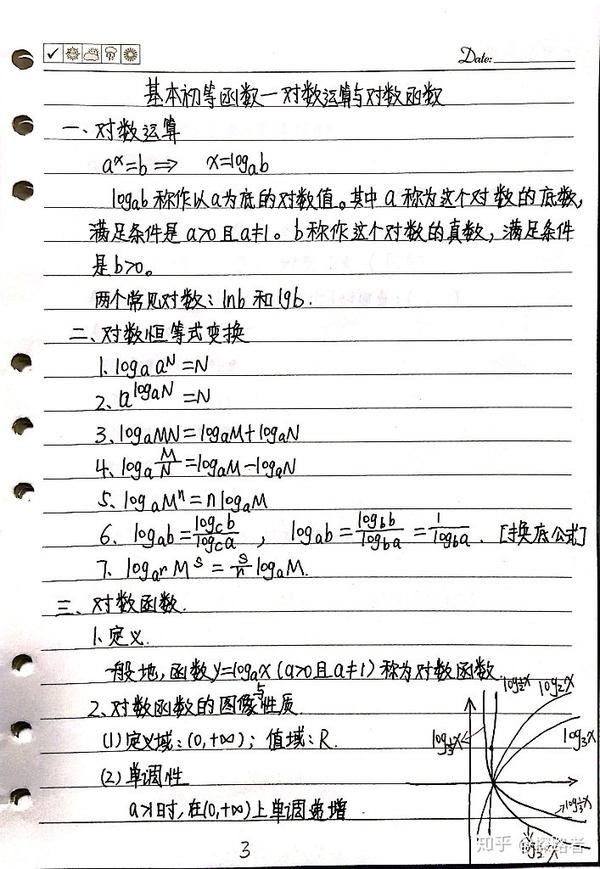 Date:
基本初等函数一对数运算与对数函数
一、对数运算
aˣ=b ⇒ x=logₐb
logₐb称作以a为底的对数值。其中a称为这个对数的底数,
满足条件是a>0且a≠1。b称作这个对数的真数,满足条件
是b>0。
两个常见对数:lnb和lgb.
二、对数恒等式变换
1、logₐaᴺ=N
2、a^(logₐN)=N
3、logₐMN=logₐM+logₐN
4、logₐ(M/N)=logₐM-logₐN
5、logₐMⁿ=nlogₐM
6、logₐb=(log_c b)/(log_c a) , logₐb=(log_b b)/(log_b a)=1/(log_b a) . [换底公式]
7、log_(aⁿ) Mˢ=(s/n)logₐM.
三、对数函数.
1、定义.
一般地,函数y=logₐx(a>0且a≠1)称为对数函数.
2、对数函数的图像与性质.
(1)定义域:(0,+∞);值域:R.
(2)单调性
a>1时,在(0,+∞)上单调递增
log₂x
log₃x
3
知乎 @探路者